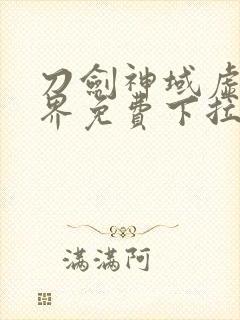 刀劍神域虛
界免費下拉
滿滿阿